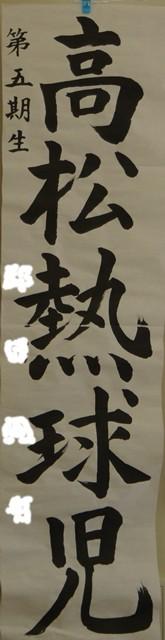 高松熱球児
第五期生